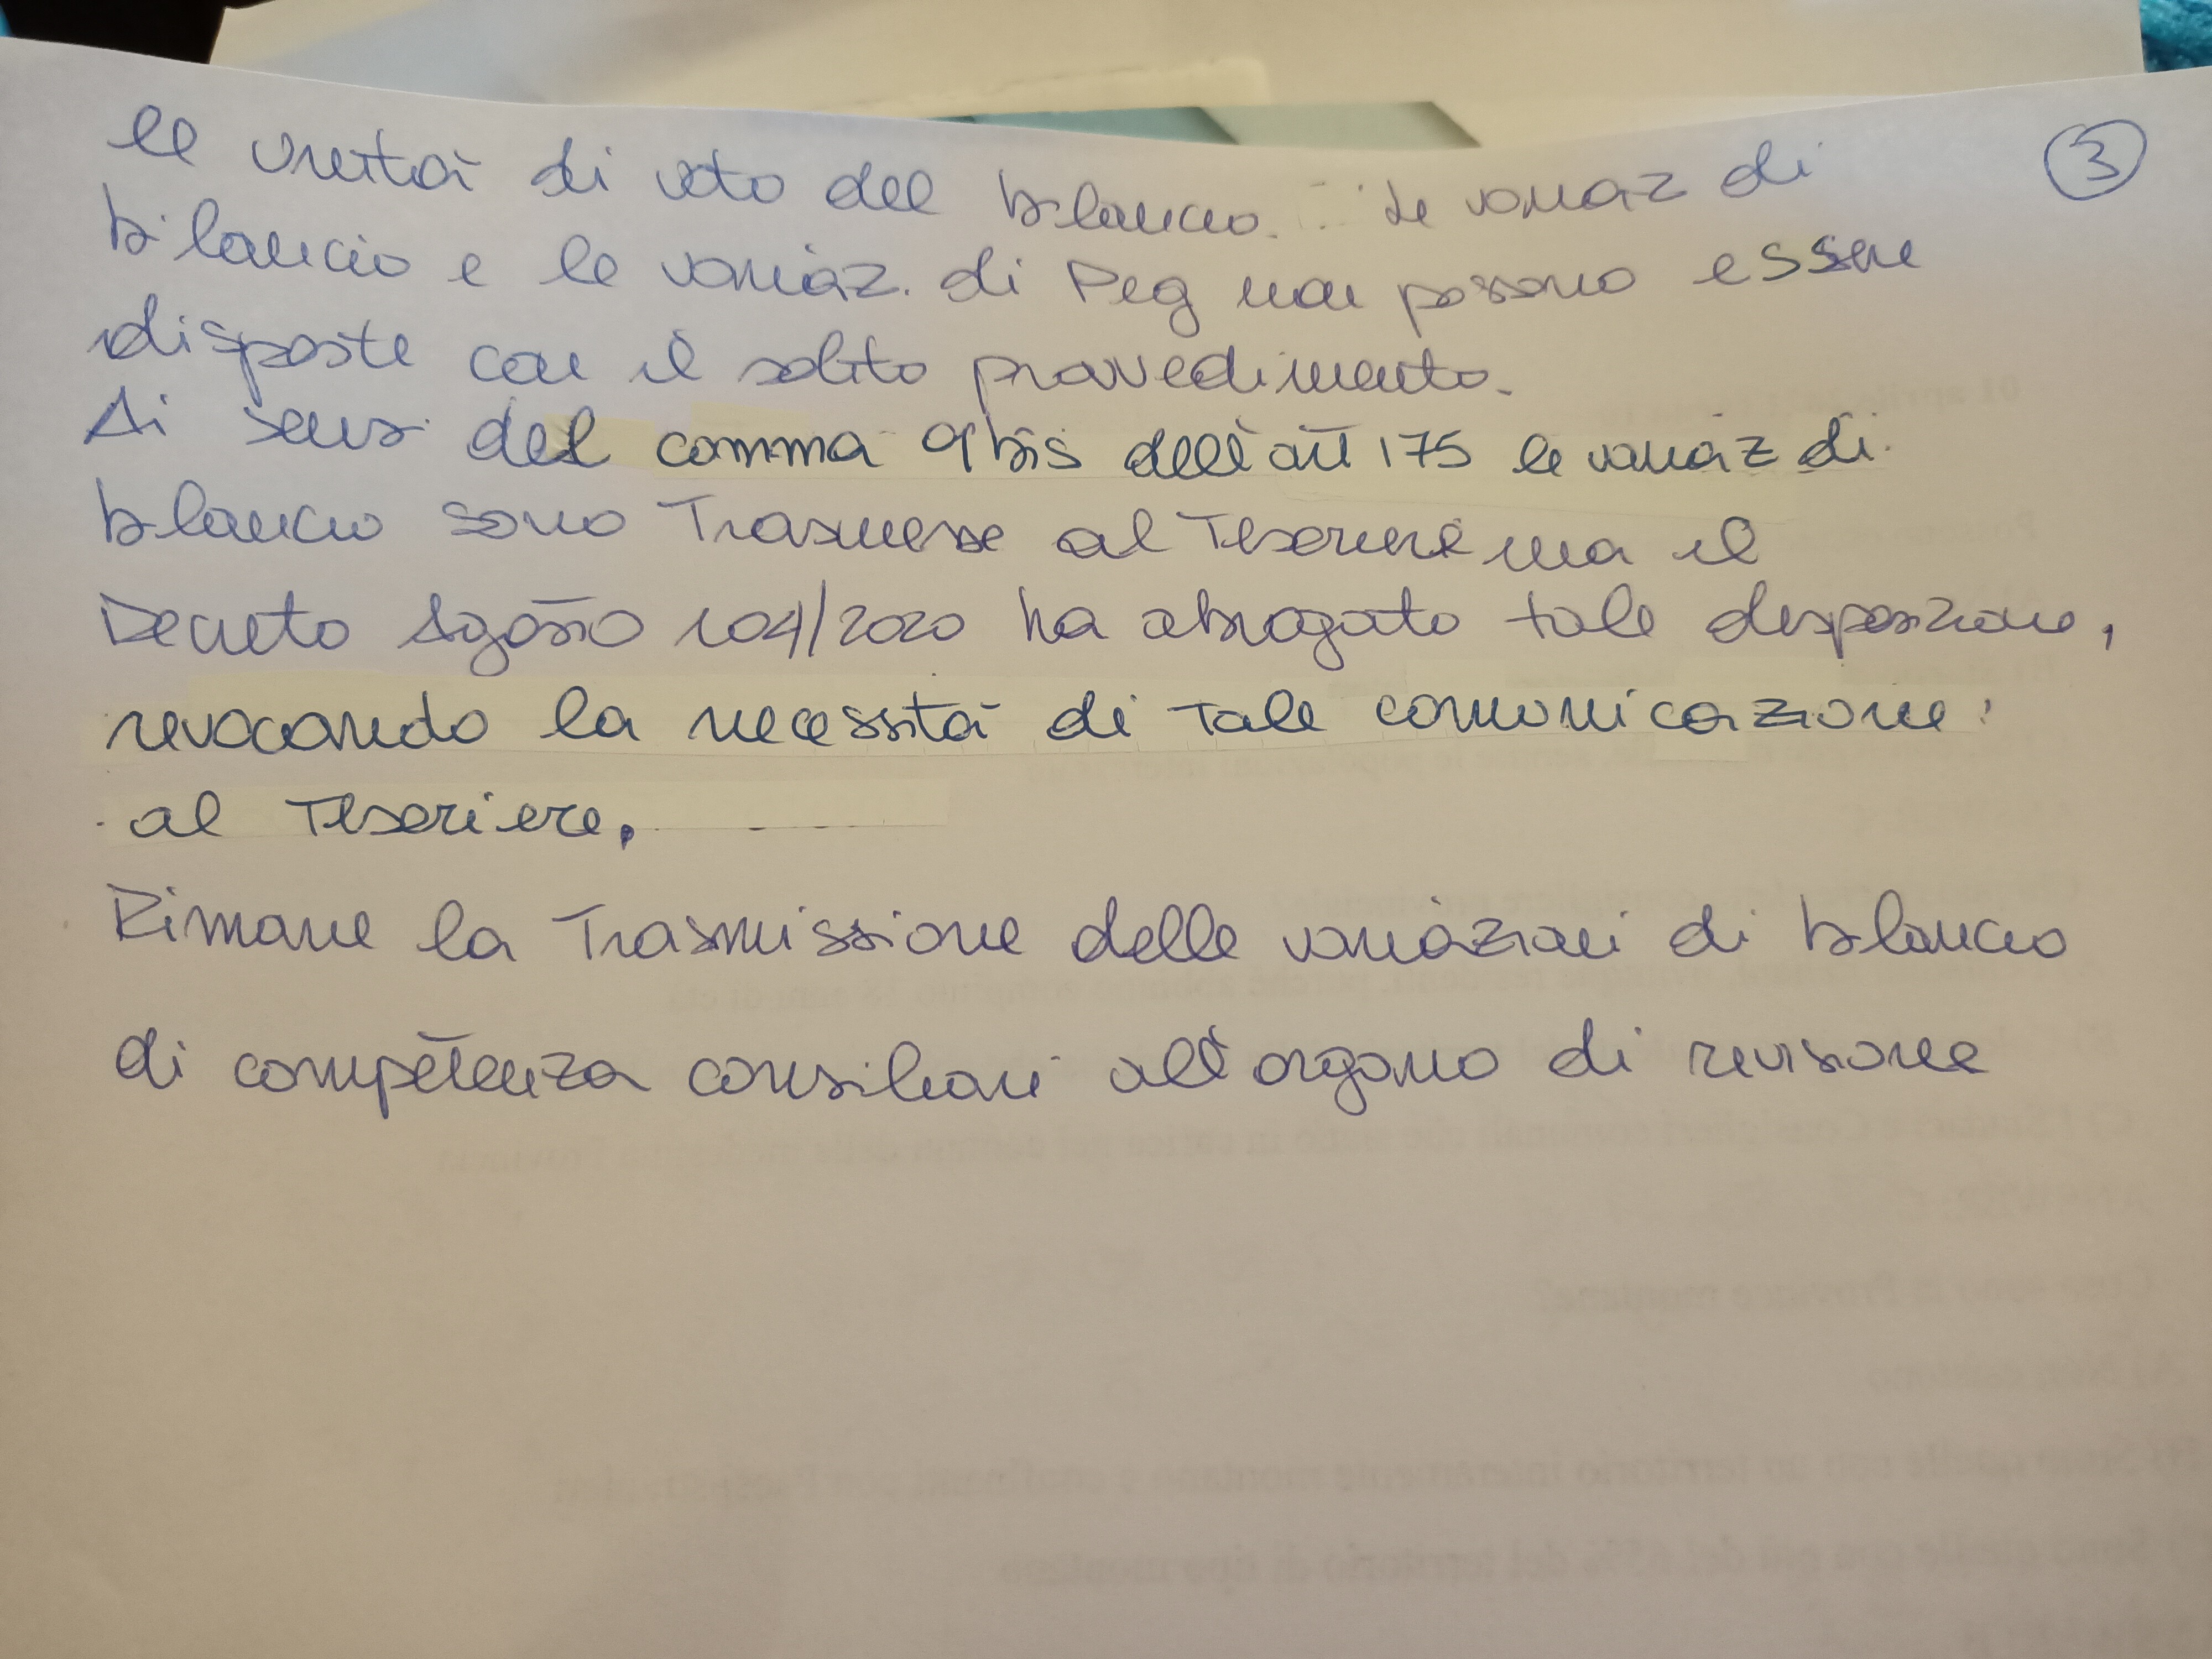 le unità di voto del bilancio. Le variaz di
3
bilancio e le variaz. di Peg non possono essere
disposte con il solito provvedimento.
Ai sensi del comma 9bis dell'art 175 le variaz di
bilancio sono Trasmesse al Tesoriere ma il
Decreto Agosto 104/2020 ha abrogato tale disposizione,
revocando la necessità di Tale comunicazione
al Tesoriere.
Rimane la Trasmissione delle variazioni di bilancio
di competenza consiliare all'organo di revisione